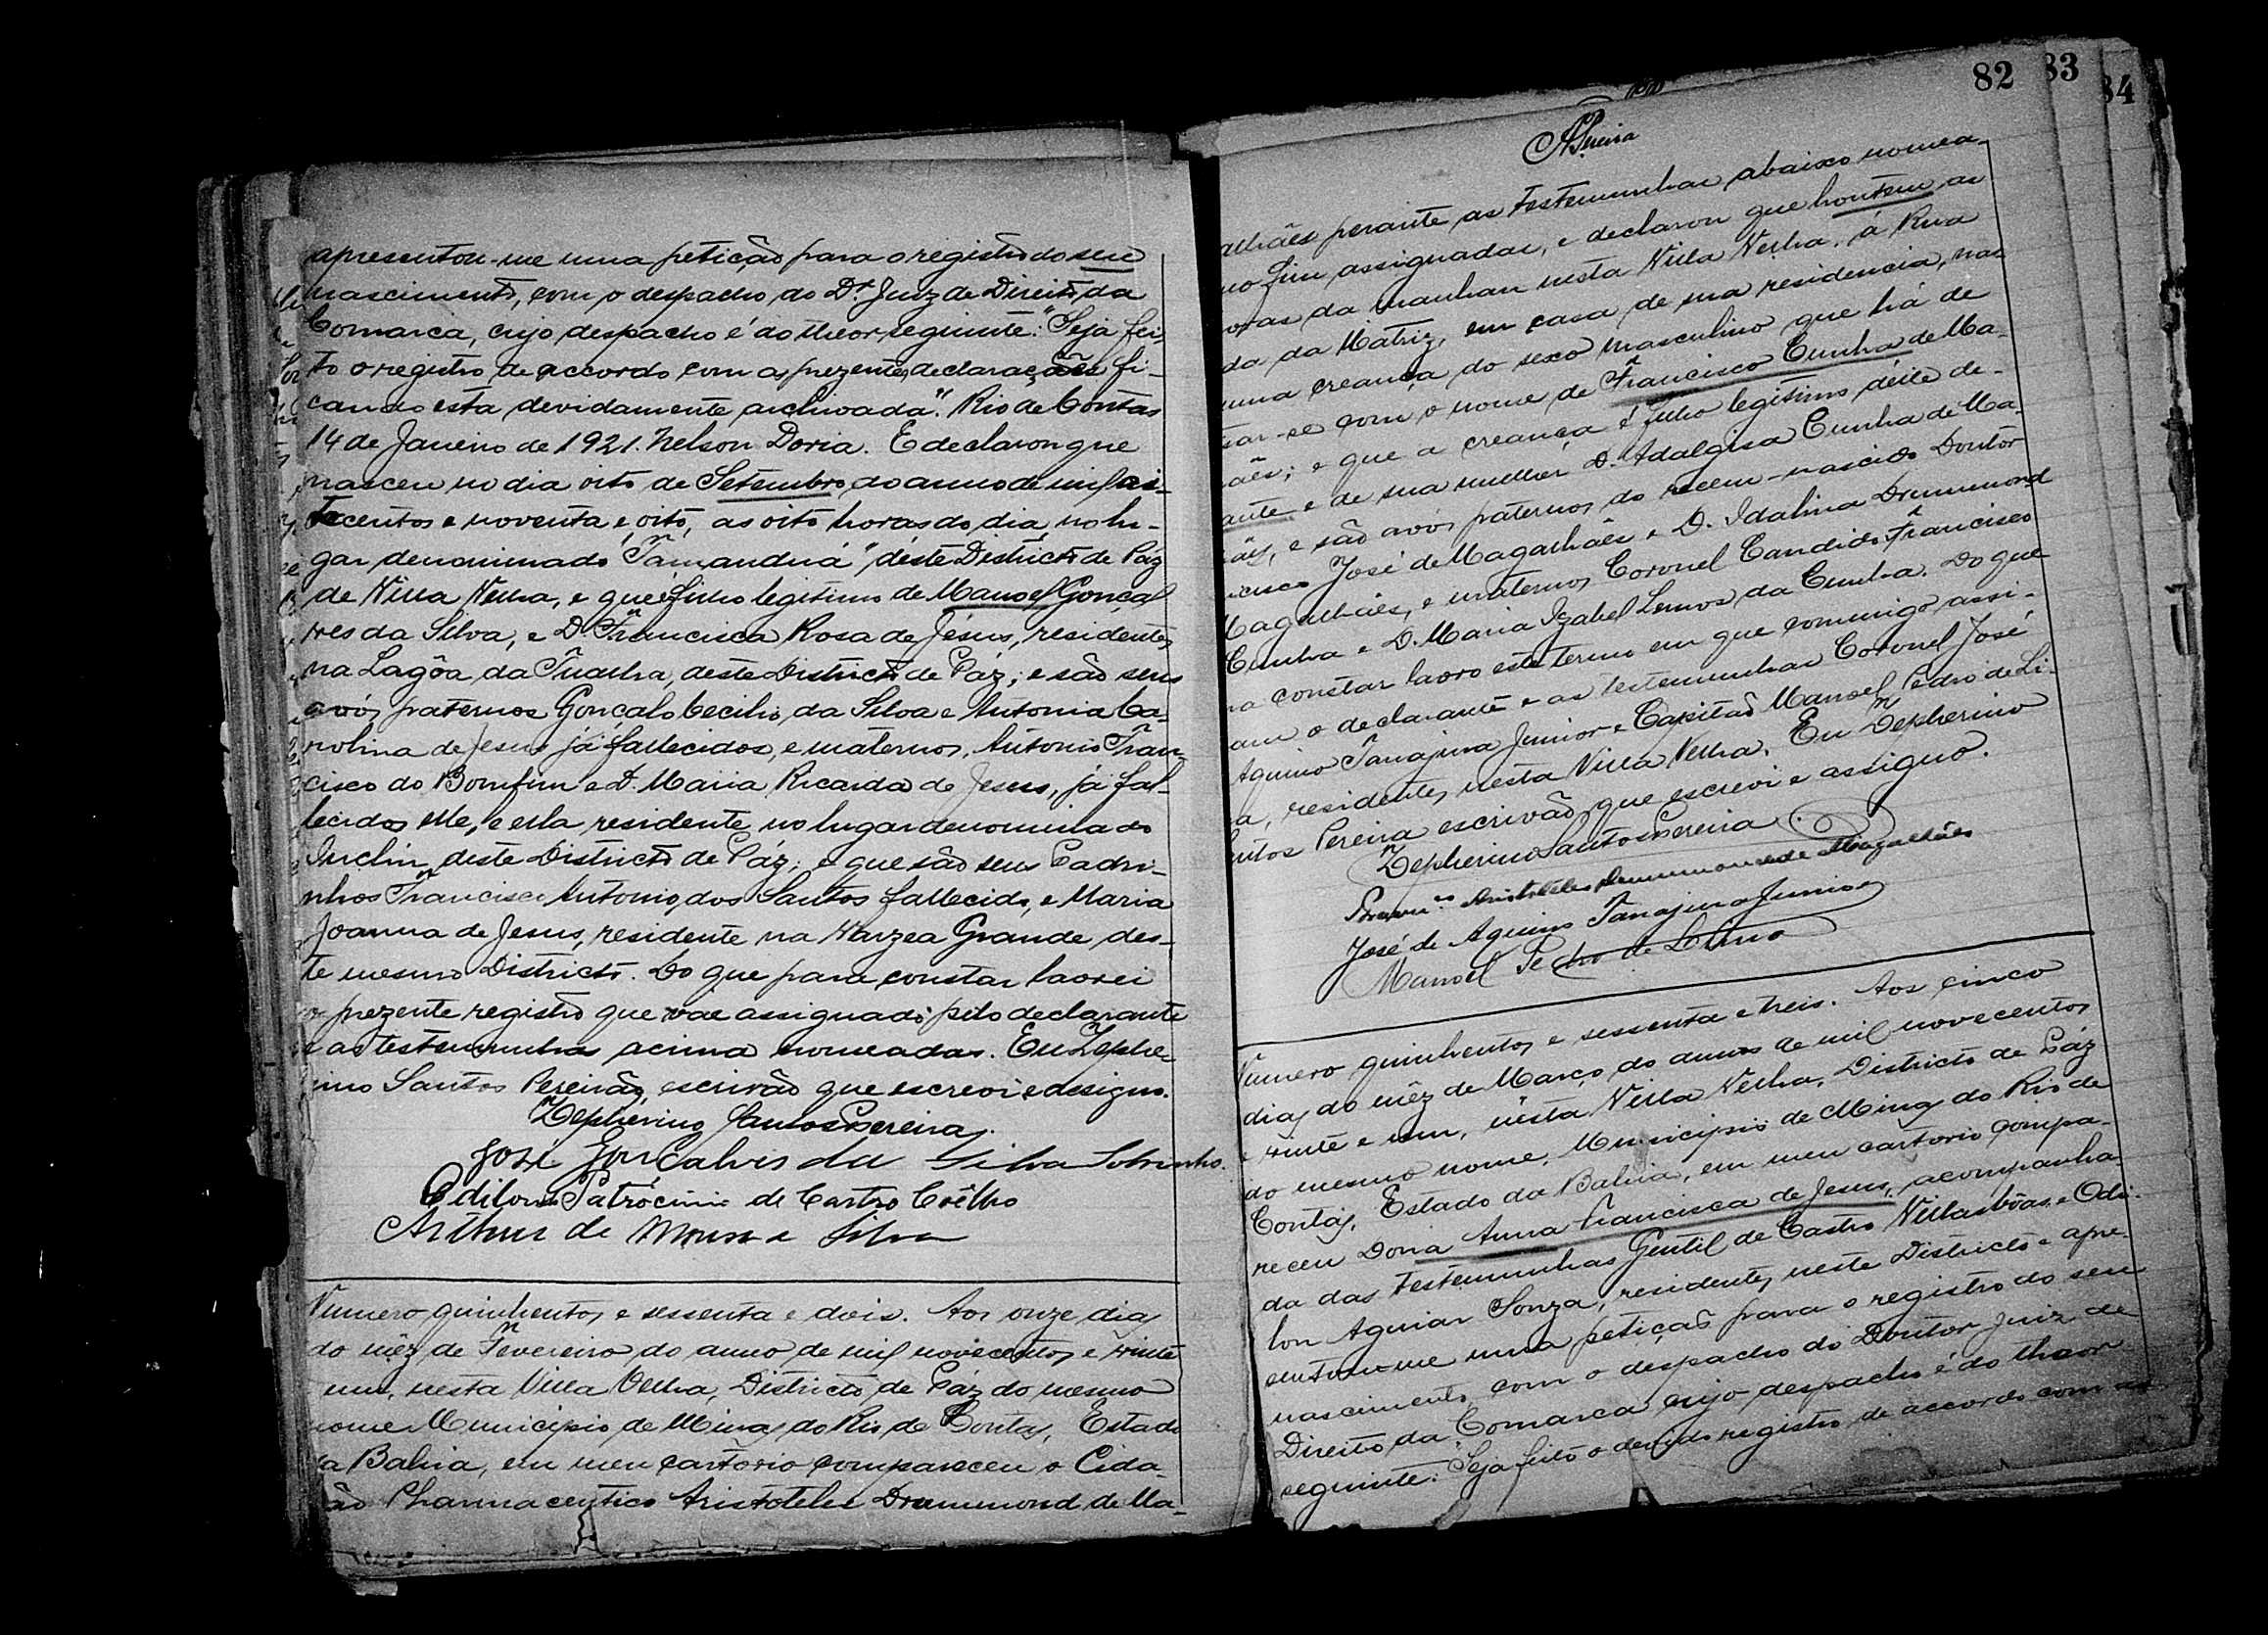 apresentou-me uma petição para o registro do seu
nascimento, com o despacho do Dr. Juiz de Direito da
Comarca, cujo despacho é do theor seguinte: "Seja fei-
to o registro de accordo com as prezentes declarações fi-
cando esta devidamente archivada". Rio de Contas
14 de Janeiro de 1921. Nelson Doria. E declarou que
nasceu no dia oito de Setembro do anno de mil oi-
tocentos e noventa e oito, as oito horas do dia, no lu-
gar denominado "Tamanduá" deste Districto de Páz
de Villa Velha, e que é filho legitimo de Manoel Gonçal
ves da Silva, e D. Francisca Rosa de Jesus, residentes
na Lagôa da deste Districto de Páz; e são seus
avós paternos Gonçalo Cecilio da Silva e Antonia Ca-
rolina de Jesus já fallecidos, e maternos, Antonio Fran-
cisco do Bomfim e D. Maria Ricarda de Jesus, já fal-
lecidos elle, e ella residente no lugar denominado
deste Districto de Páz; e que são seus Padri-
nhos Francisco Antonio dos Santos fallecido, e Maria
Joanna de Jesus, residente na Varzea Grande, des-
te mesmo Districto. Do que para constar lavrei
o prezente registro que vae assignado pelo declarante
e as testemunhas acima nomeadas. Eu Zephe-
rino Santos Pereira, escrivão que escrevi e assigno.
Zepherino Santos Pereira.
José Gonçalves da Silva Sobrinho.
Edilon Patrocinio de Castro Coêlho
Arthur de Moura e Silva
Numero quinhentos e sessenta e dois. Aos onze dias
do mêz de Fevereiro do anno de mil novecentos e vinte
um, nesta Villa Velha, Districto de Páz do mesmo
nome Municipio de Minas do Rio de Contas, Estado
da Bahia, em meu cartorio compareceu o Cida-
dão Pharmaceutico Aristoteles Drummond de Ma-
82
83
84
galhães perante as testemunhas abaixo nomea-
no fim assignadas, e declarou que hontem as
horas da manhan nesta Villa Velha, á Rua
da da Matriz, em casa de sua residencia, nas-
uma creança do sexo masculino que há de
mar-se com o nome de Francisco Cunha de Ma-
ães; e que a creança é filho legitimo dêlle de-
ante e de sua mulher D. Adalgisa Cunha de Ma-
ães, e são avós paternos do recem-nascido Doutor
ncisco José de Magalhães e D. Idalina Drummond
Magalhães, e maternos Coronel Candido Francisco
Cunha e D. Maria Izabel Lemos da Cunha. Do que
ra constar lavro este termo em que commigo assi-
am o declarante e as testemunhas Coronel José
Aquino Tanajura Junior e Capitão Manoel Pedro de Li-
a, residentes nesta Villa Velha. Eu Zepherino
antos Pereira escrivão que escrevi e assigno.
Zepherino Santos Pereira.
Aristoteles Drummond de Magalhães
José de Aquino Tanajura Junior
Manoel Pedro de
Numero quinhentos e sessenta e treis. Aos cinco
dias do mêz de Março do anno de mil novecentos
e vinte e um, nêsta Villa Velha, Districto de Páz
do mesmo nome, Municipio de Minas do Rio de
Contas, Estado da Bahia, em meu cartorio compa-
receu Dona Anna Francisca de Jesus, acompanha-
da das testemunhas Gentil de Castro Villasbôas e Odi-
lon Aguiar Souza, residentes neste Districto e apre-
sentou-me uma petição para o registro do seu
nascimento, com o despacho do Doutor Juiz de
Direito da Comarca cujo despacho é do theor
seguinte: "Seja feito o devido registro de accordo com as